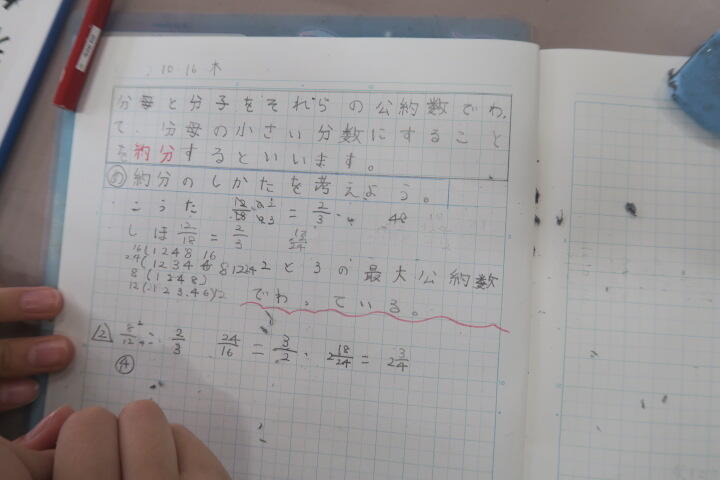 10.16 木
分母と分子をそれらの公約数でわっ
て、分母の小さい分数にすること
を約分するといいます。
め 約分のしかたを考えよう。
こうた 12/18 = 2/3 48
しほ 12/18 = 2/3 18/24
16(1 2 4 8 16
24(1 2 3 4 6 8 12 24 2と3の最大公約数
8(1 2 4 8)
12(1 2 3 4 6)12 でわっている。
2 8/12 = 2/3 24/16 = 3/2 2 18/24 = 2 3/4
4